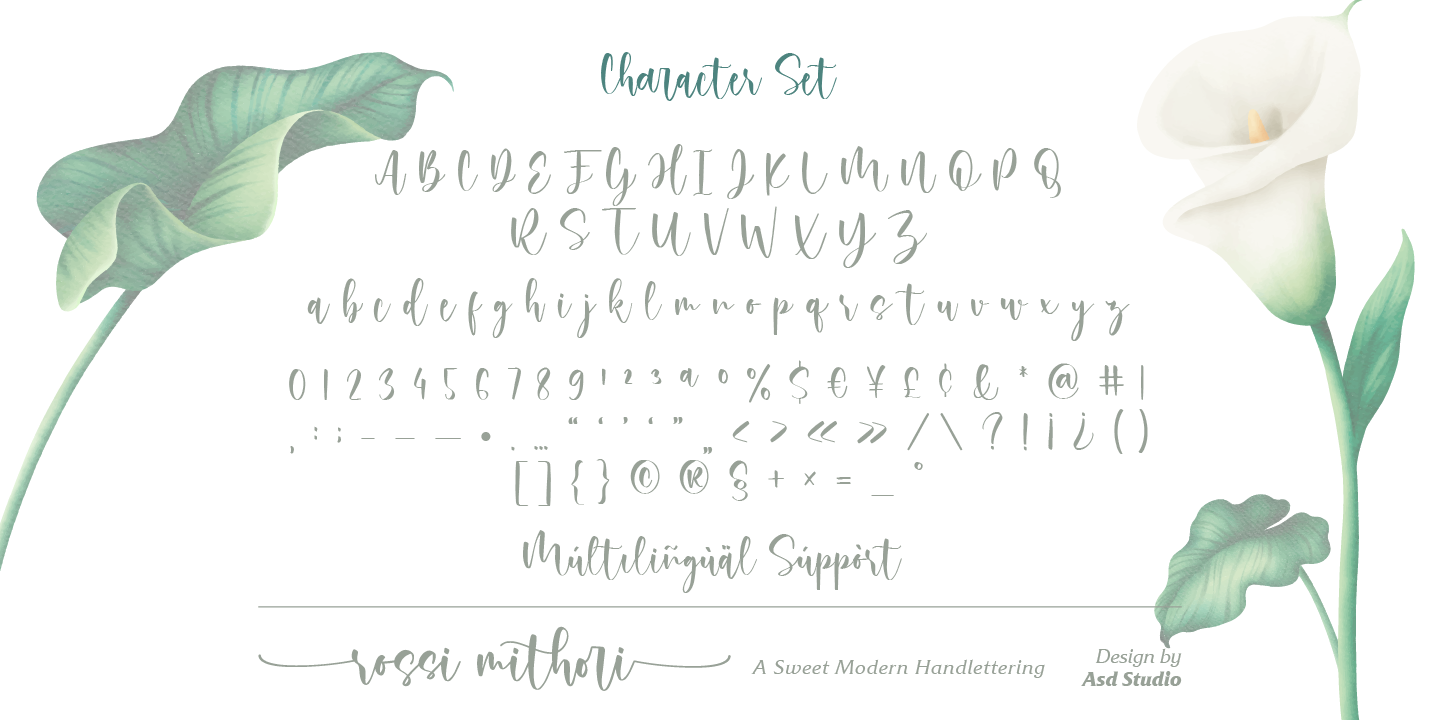 Character Set
A B C D E F G H I J K L M N O P Q
R S T U V W X Y Z
a b c d e f g h i j k l m n o p q r s t u v w x y z
0 1 2 3 4 5 6 7 8 9 ¹ ² ³ ª º % $ € ¥ £ ¢ & * @ # |
, : ; - – — • . … “ ‘ ’ ‘ ” „ < > « » / \ ? ! ¡ ¿ ( )
[ ] { } © ® § + × = _ °
Múltılıñgùäl Súppòrt
rossi mithori
A Sweet Modern Handlettering
Design by
Asd Studio